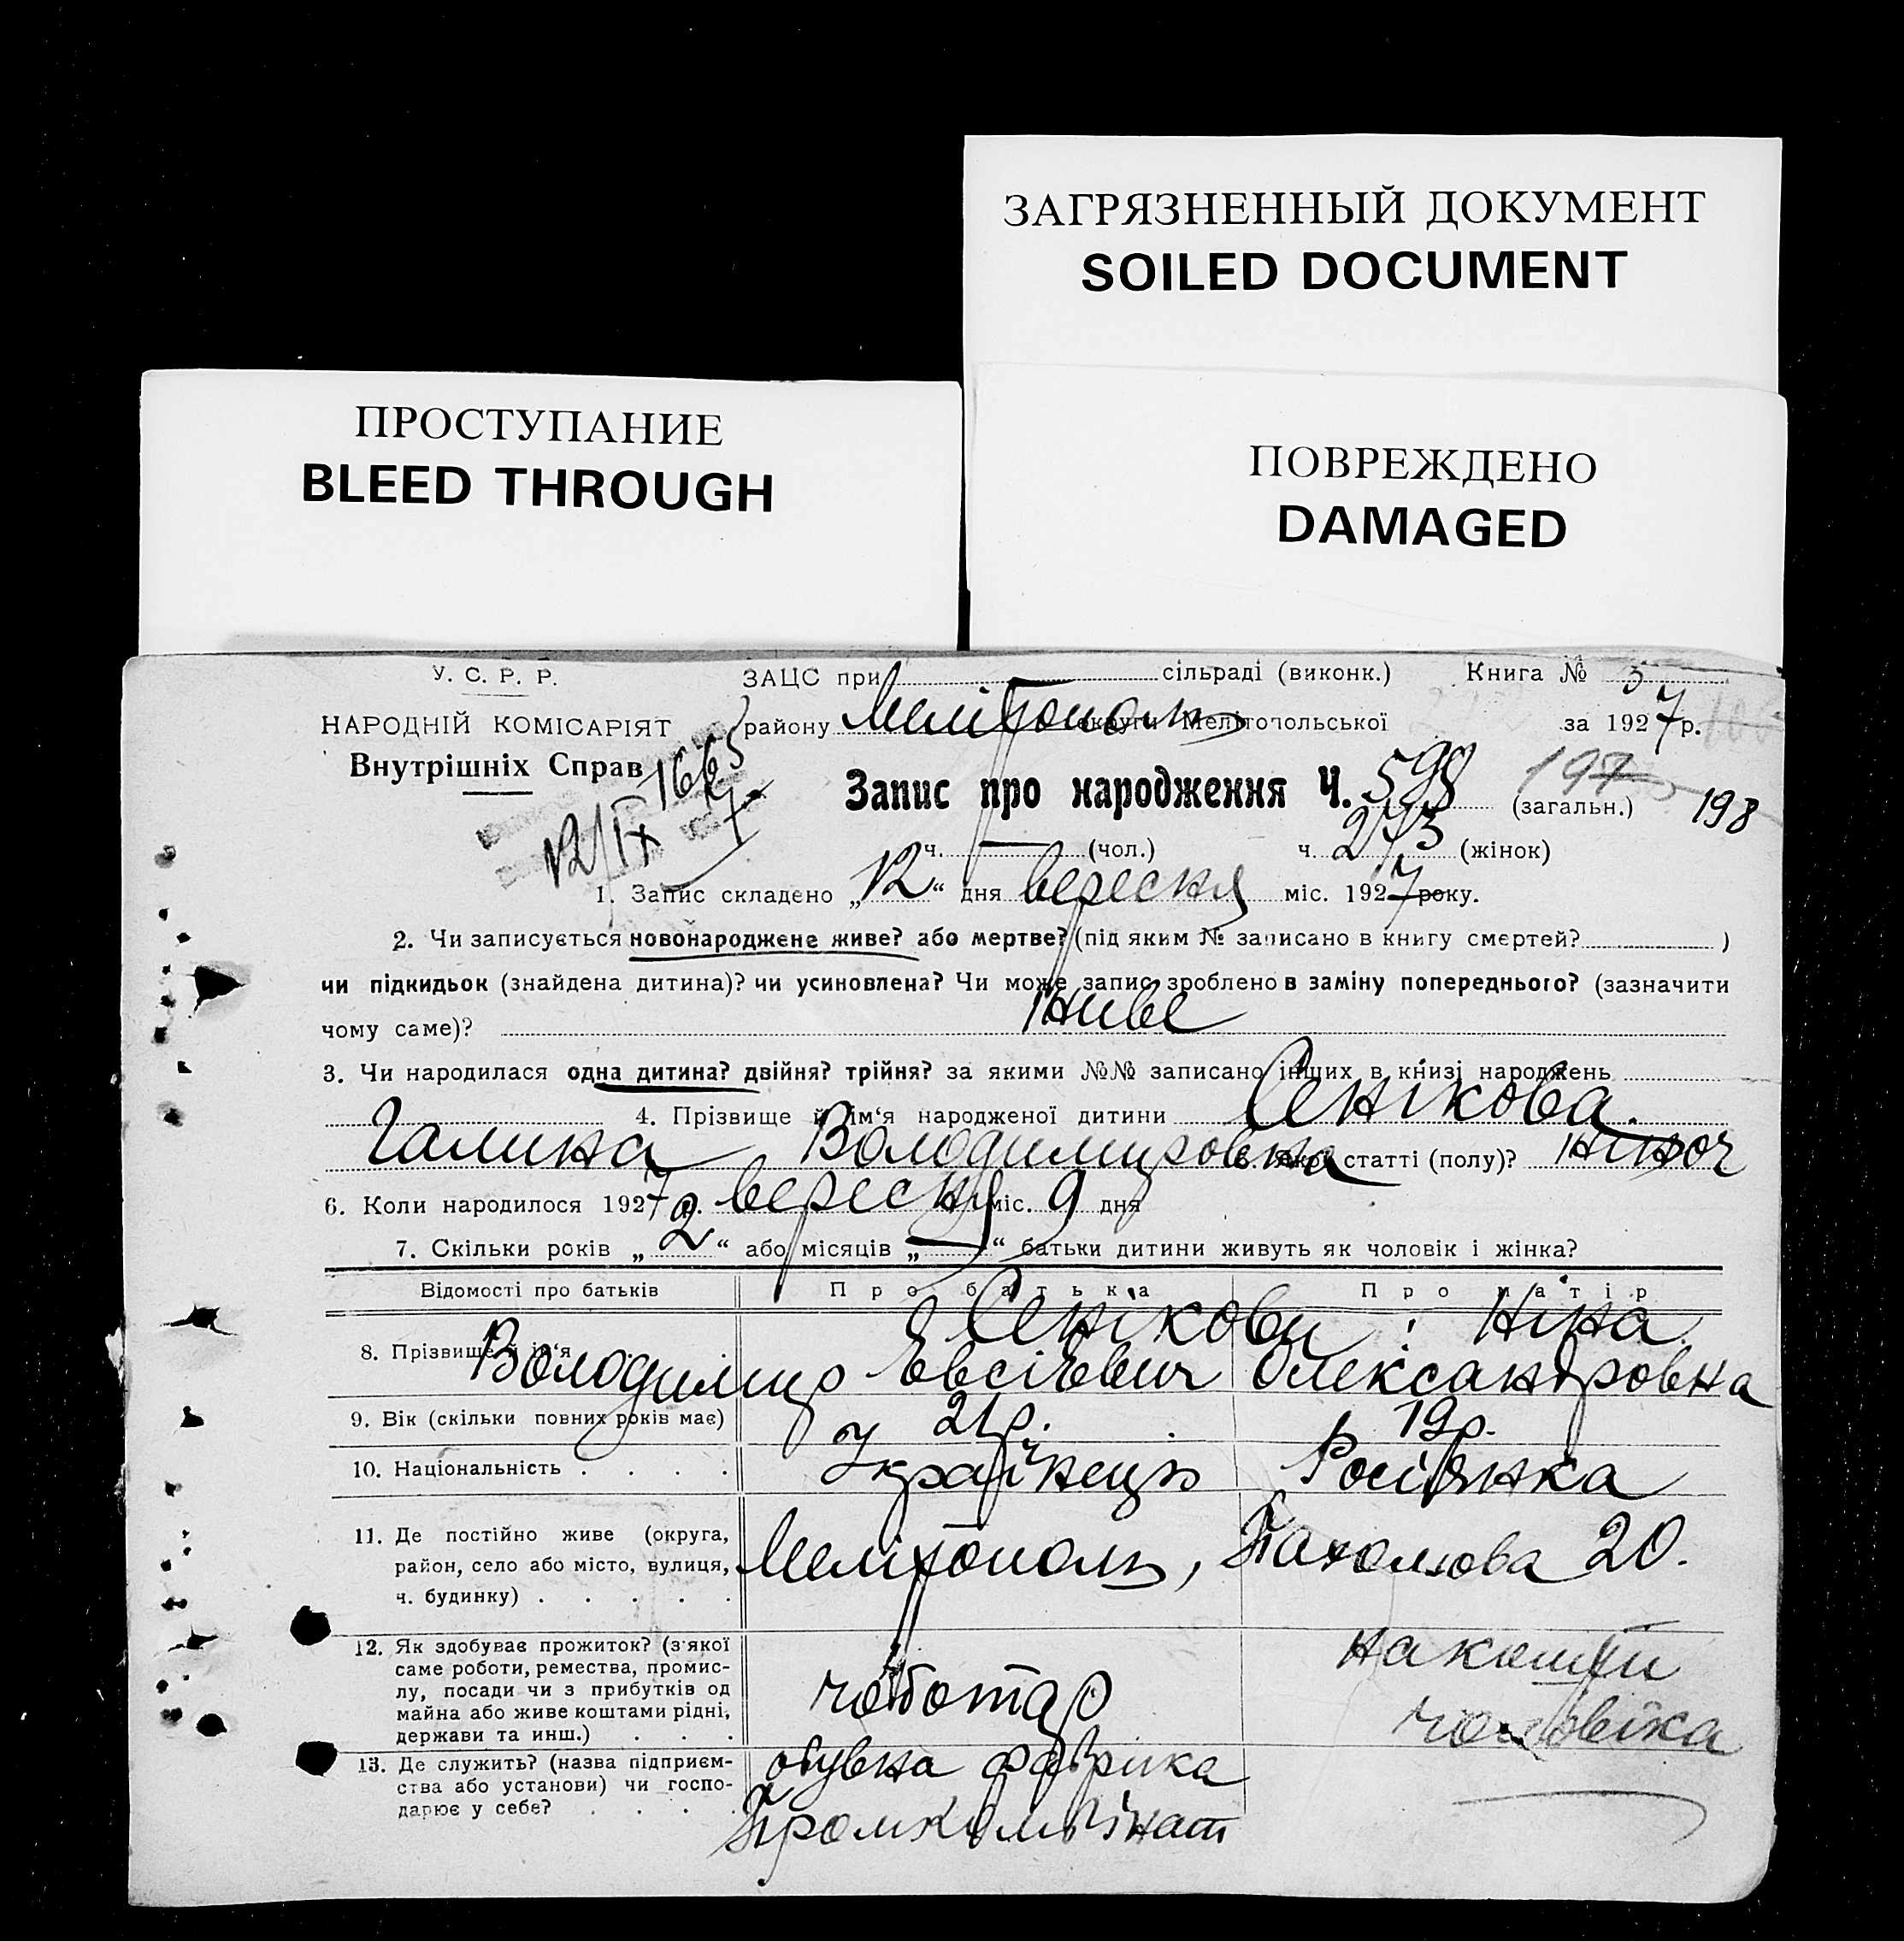 ЗАГРЯЗНЕННЫЙ ДОКУМЕНТ
SOILED DOCUMENT
ПРОСТУПАНИЕ
BLEED THROUGH
ПОВРЕЖДЕНО
DAMAGED
У. С. Р. Р.
НАРОДНІЙ КОМІСАРІЯТ
Внутрішніх Справ
1665
12/IX 7
ЗАЦС при сільраді (виконк.) Книга № 3
району Мелітополь округи Мелітопольської за 1927 р.
Запис про народження Ч. 598 (загальн.) 197 198
ч. — (чол.) ч. 273 (жінок)
1. Запис складено „12“ дня вересня міс. 1927 року.
2. Чи записується новонароджене живе? або мертве? (під яким № записано в книгу смертей? )
чи підкидьок (знайдена дитина)? чи усиновлена? Чи може запис зроблено в заміну попереднього? (зазначити
чому саме)? Живе
3. Чи народилася одна дитина? двійня? трійня? за якими №№ записано інших в книзі народжень
4. Прізвище й ім‘я народженої дитини Сенікова.
Галина Володимировна 5. Якої статті (полу)? жіноч
6. Коли народилося 1927 р. вересня міс. 9 дня
7. Скільки років „2“ або місяців „—“ батьки дитини живуть як чоловік і жінка?
Відомості про батьків Про батька Про матір
8. Прізвище й ім‘я Сенікови: Ніна
Володимир Євсієвич Олександровна
9. Вік (скільки повних років має) 21 р. 19 р.
10. Національність . . . . Українець Росіянка
11. Де постійно живе (округа,
район, село або місто, вулиця, Мелітополь, 20.
ч. будинку) . . . . .
12. Як здобуває прожиток? (з якої
саме роботи, ремества, промис-
лу, посади чи з прибутків од
майна або живе коштами рідні,
держави та инш.) . . .
чоботар
на кошти
чоловіка
13. Де служить? (назва підприєм-
ства або установи) чи госпо-
дарює у себе? . . . .
обувна фабрика
Промкомбінат